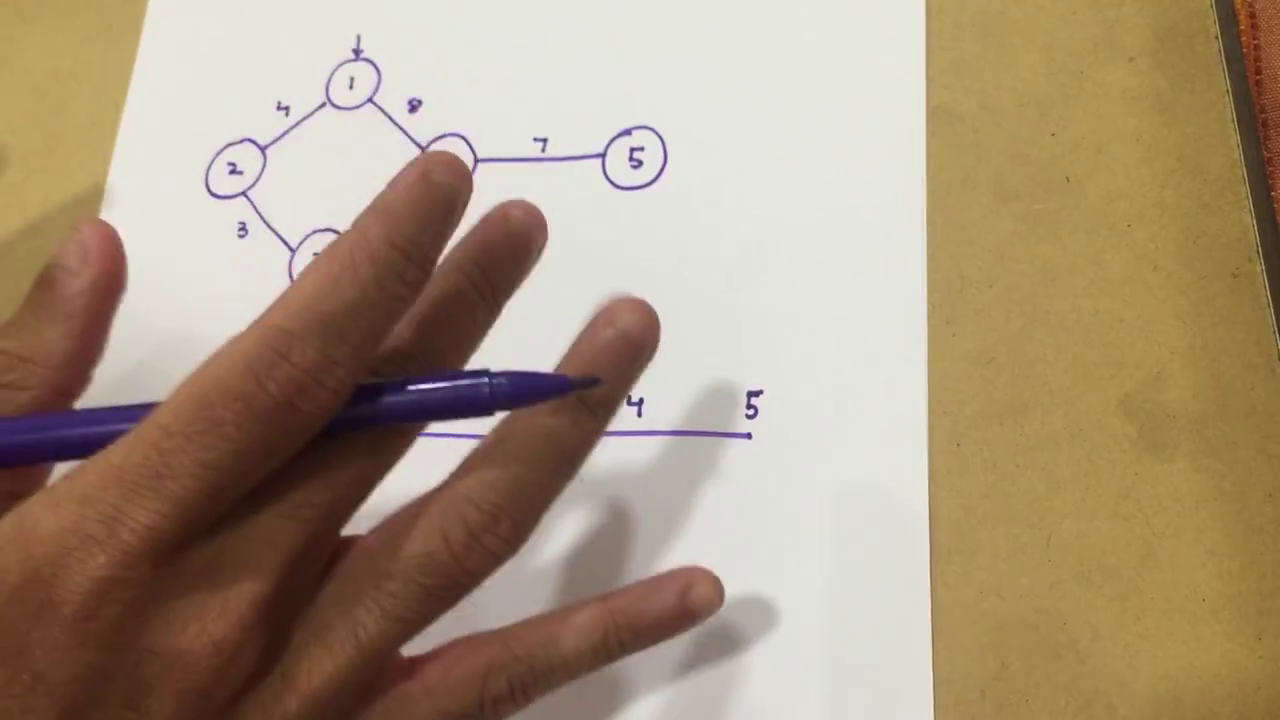 1
4 8
2 7 5
3
4 5